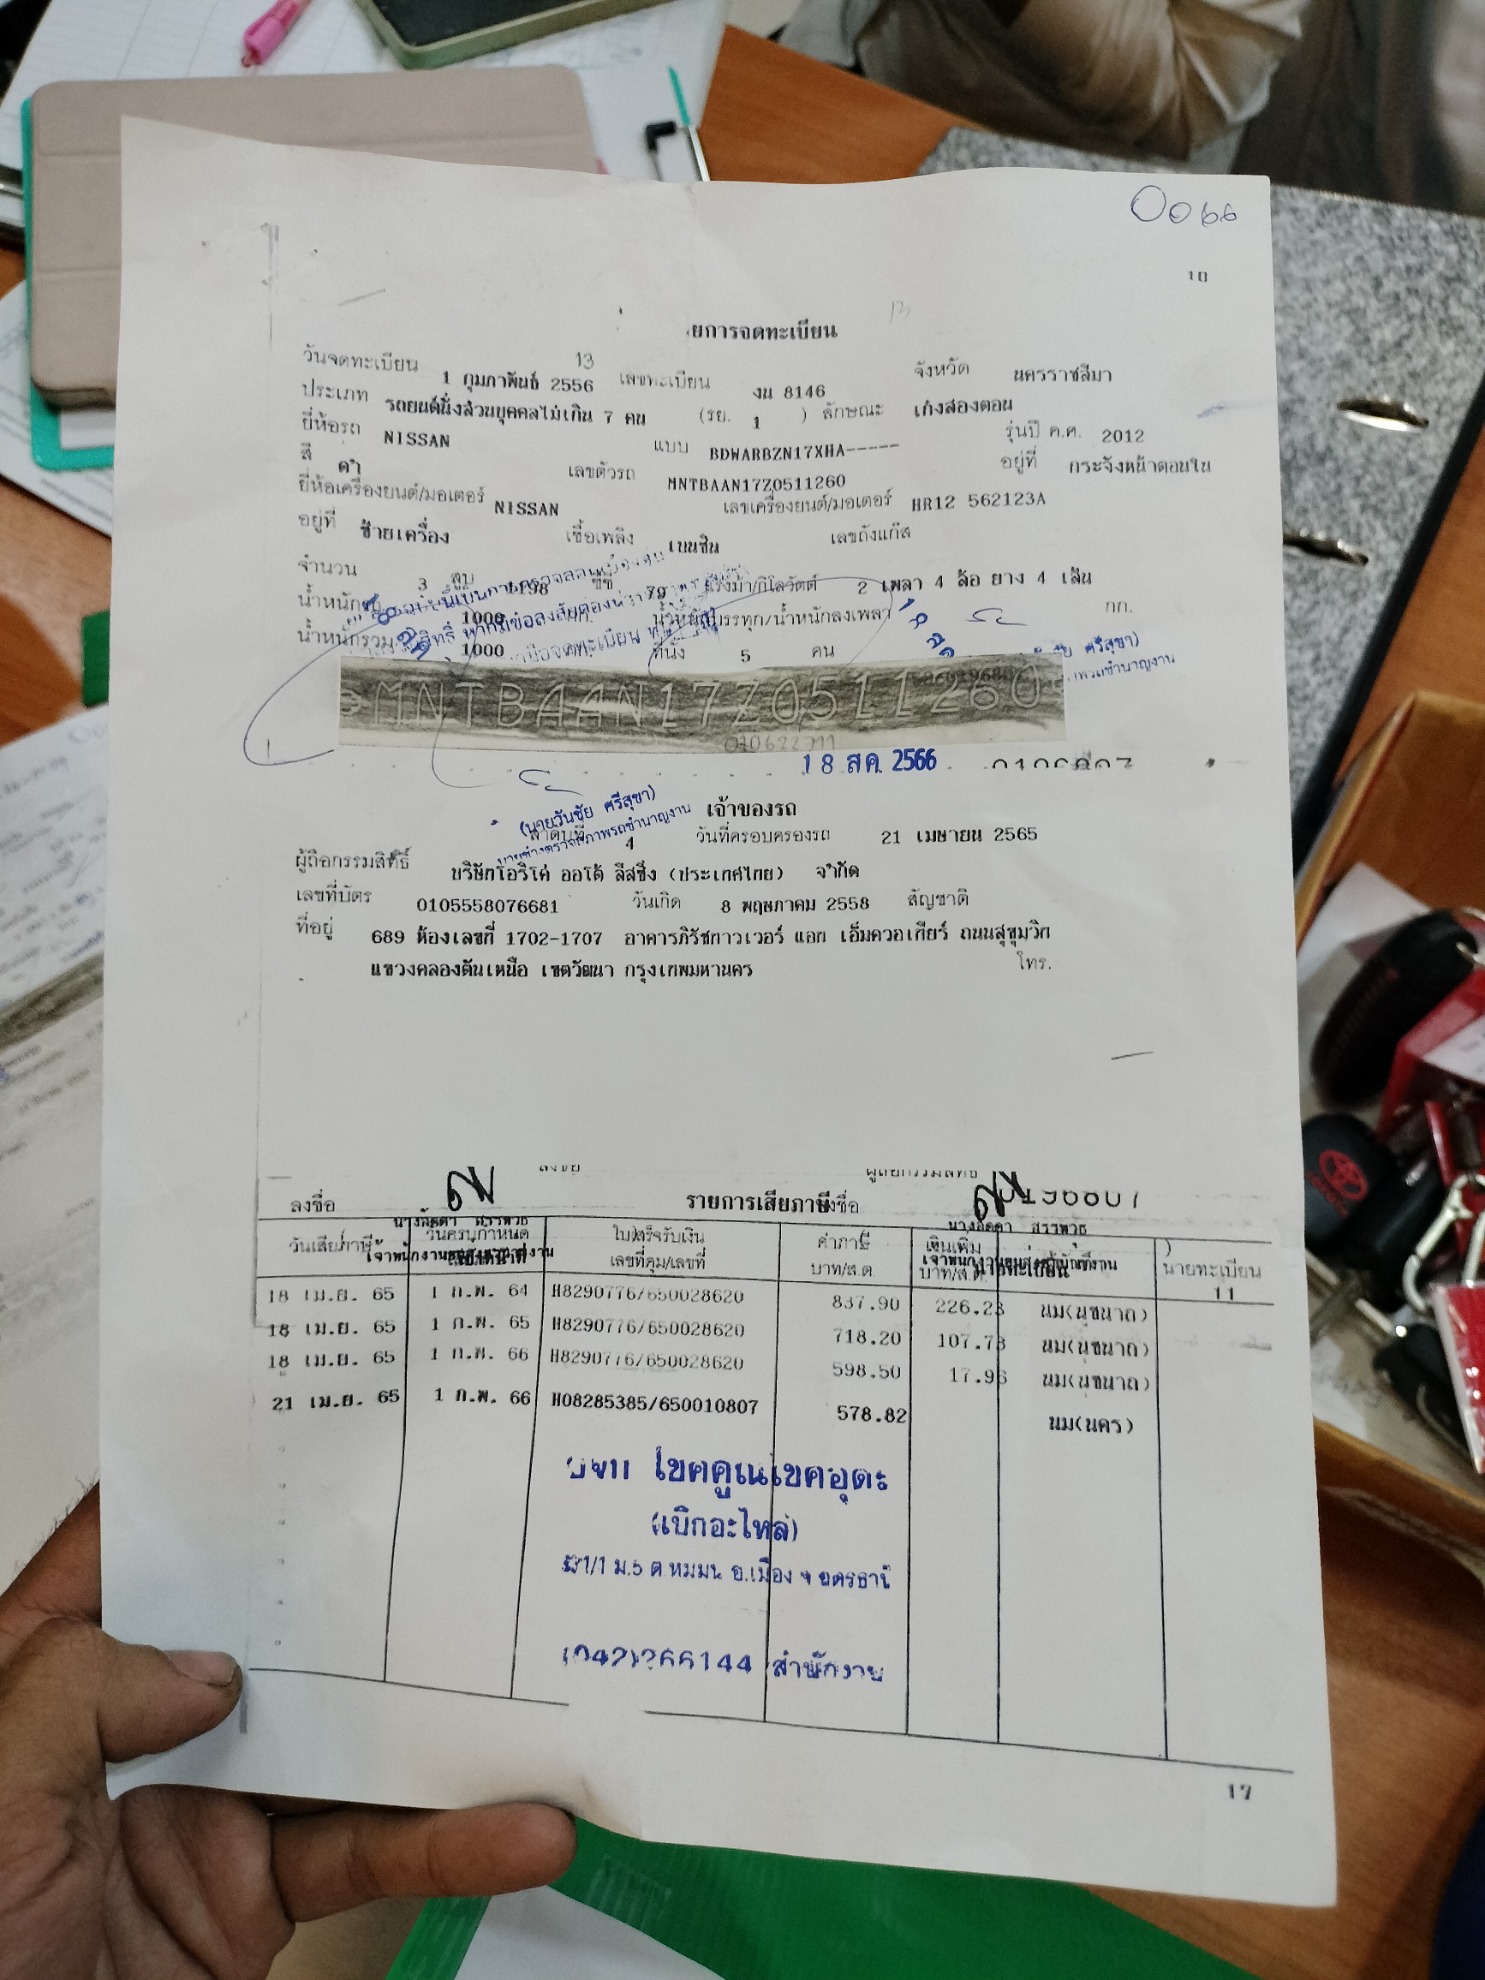 Oo66
10
ยการจดทะเบียน
วันจดทะเบียน 13 1 กุมภาพันธ์ 2556 เลขทะเบียน งน 8146 จังหวัด นครราชสีมา
ประเภท รถยนต์นั่งส่วนบุคคลไม่เกิน 7 คน (รย. 1 ) ลักษณะ เก๋งสองตอน
ยี่ห้อรถ NISSAN แบบ BDWARBZN17XHA----- รุ่นปี ค.ศ. 2012
สี ดำ เลขตัวรถ MNTBAAN17Z0511260 อยู่ที่ กระจังหน้าตอนใน
ยี่ห้อเครื่องยนต์/มอเตอร์ NISSAN เลขเครื่องยนต์/มอเตอร์ HR12 562123A
อยู่ที่ ซ้ายเครื่อง เชื้อเพลิง เบนซิน เลขถังแก๊ส
จำนวน 3 สูบ 1198 ซีซี 79 แรงม้า/กิโลวัตต์ 2 เพลา 4 ล้อ ยาง 4 เส้น
น้ำหนักรถ 1000 กก. น้ำหนักบรรทุก/น้ำหนักลงเพลา กก.
น้ำหนักรวม 1000 ที่นั่ง 5 คน
ศรีสุขา)
MNTBAAN17Z0511260
18 สค. 2566
(นายวันชัย ศรีสุขา)
นายช่างตรวจสภาพรถชำนาญงาน
เจ้าของรถ
ลำดับที่ 4 วันที่ครอบครองรถ 21 เมษายน 2565
ผู้ถือกรรมสิทธิ์ บริษัทโอริโค่ ออโต้ ลีสซิ่ง (ประเทศไทย) จำกัด
เลขที่บัตร 0105558076681 วันเกิด 8 พฤษภาคม 2558 สัญชาติ
ที่อยู่ 689 ห้องเลขที่ 1702-1707 อาคารภิรัชทาวเวอร์ แอท เอ็มควอเทียร์ ถนนสุขุมวิท
แขวงคลองตันเหนือ เขตวัฒนา กรุงเทพมหานคร โทร.
ลงชื่อ รายการเสียภาษี
วันเสียภาษี วันครบกำหนด ใบเสร็จรับเงิน เลขที่คุม/เลขที่ ค่าภาษี บาท/ส.ต. เงินเพิ่ม บาท/ส.ต. นายทะเบียน
11
18 เม.ย. 65 1 ก.พ. 64 H8290776/650028620 837.90 226.23 นม(นุชนาถ)
18 เม.ย. 65 1 ก.พ. 65 H8290776/650028620 718.20 107.73 นม(นุชนาถ)
18 เม.ย. 65 1 ก.พ. 66 H8290776/650028620 598.50 17.96 นม(นุชนาถ)
21 เม.ย. 65 1 ก.พ. 66 H08285385/650010807 578.82 นม(นคร)
โชคคูณโชคอุดร
(เบิกอะไหล่)
ม.5 ต.หมูม่น อ.เมือง จ.อุดรธานี
(042)266144 สำนักงาน
17